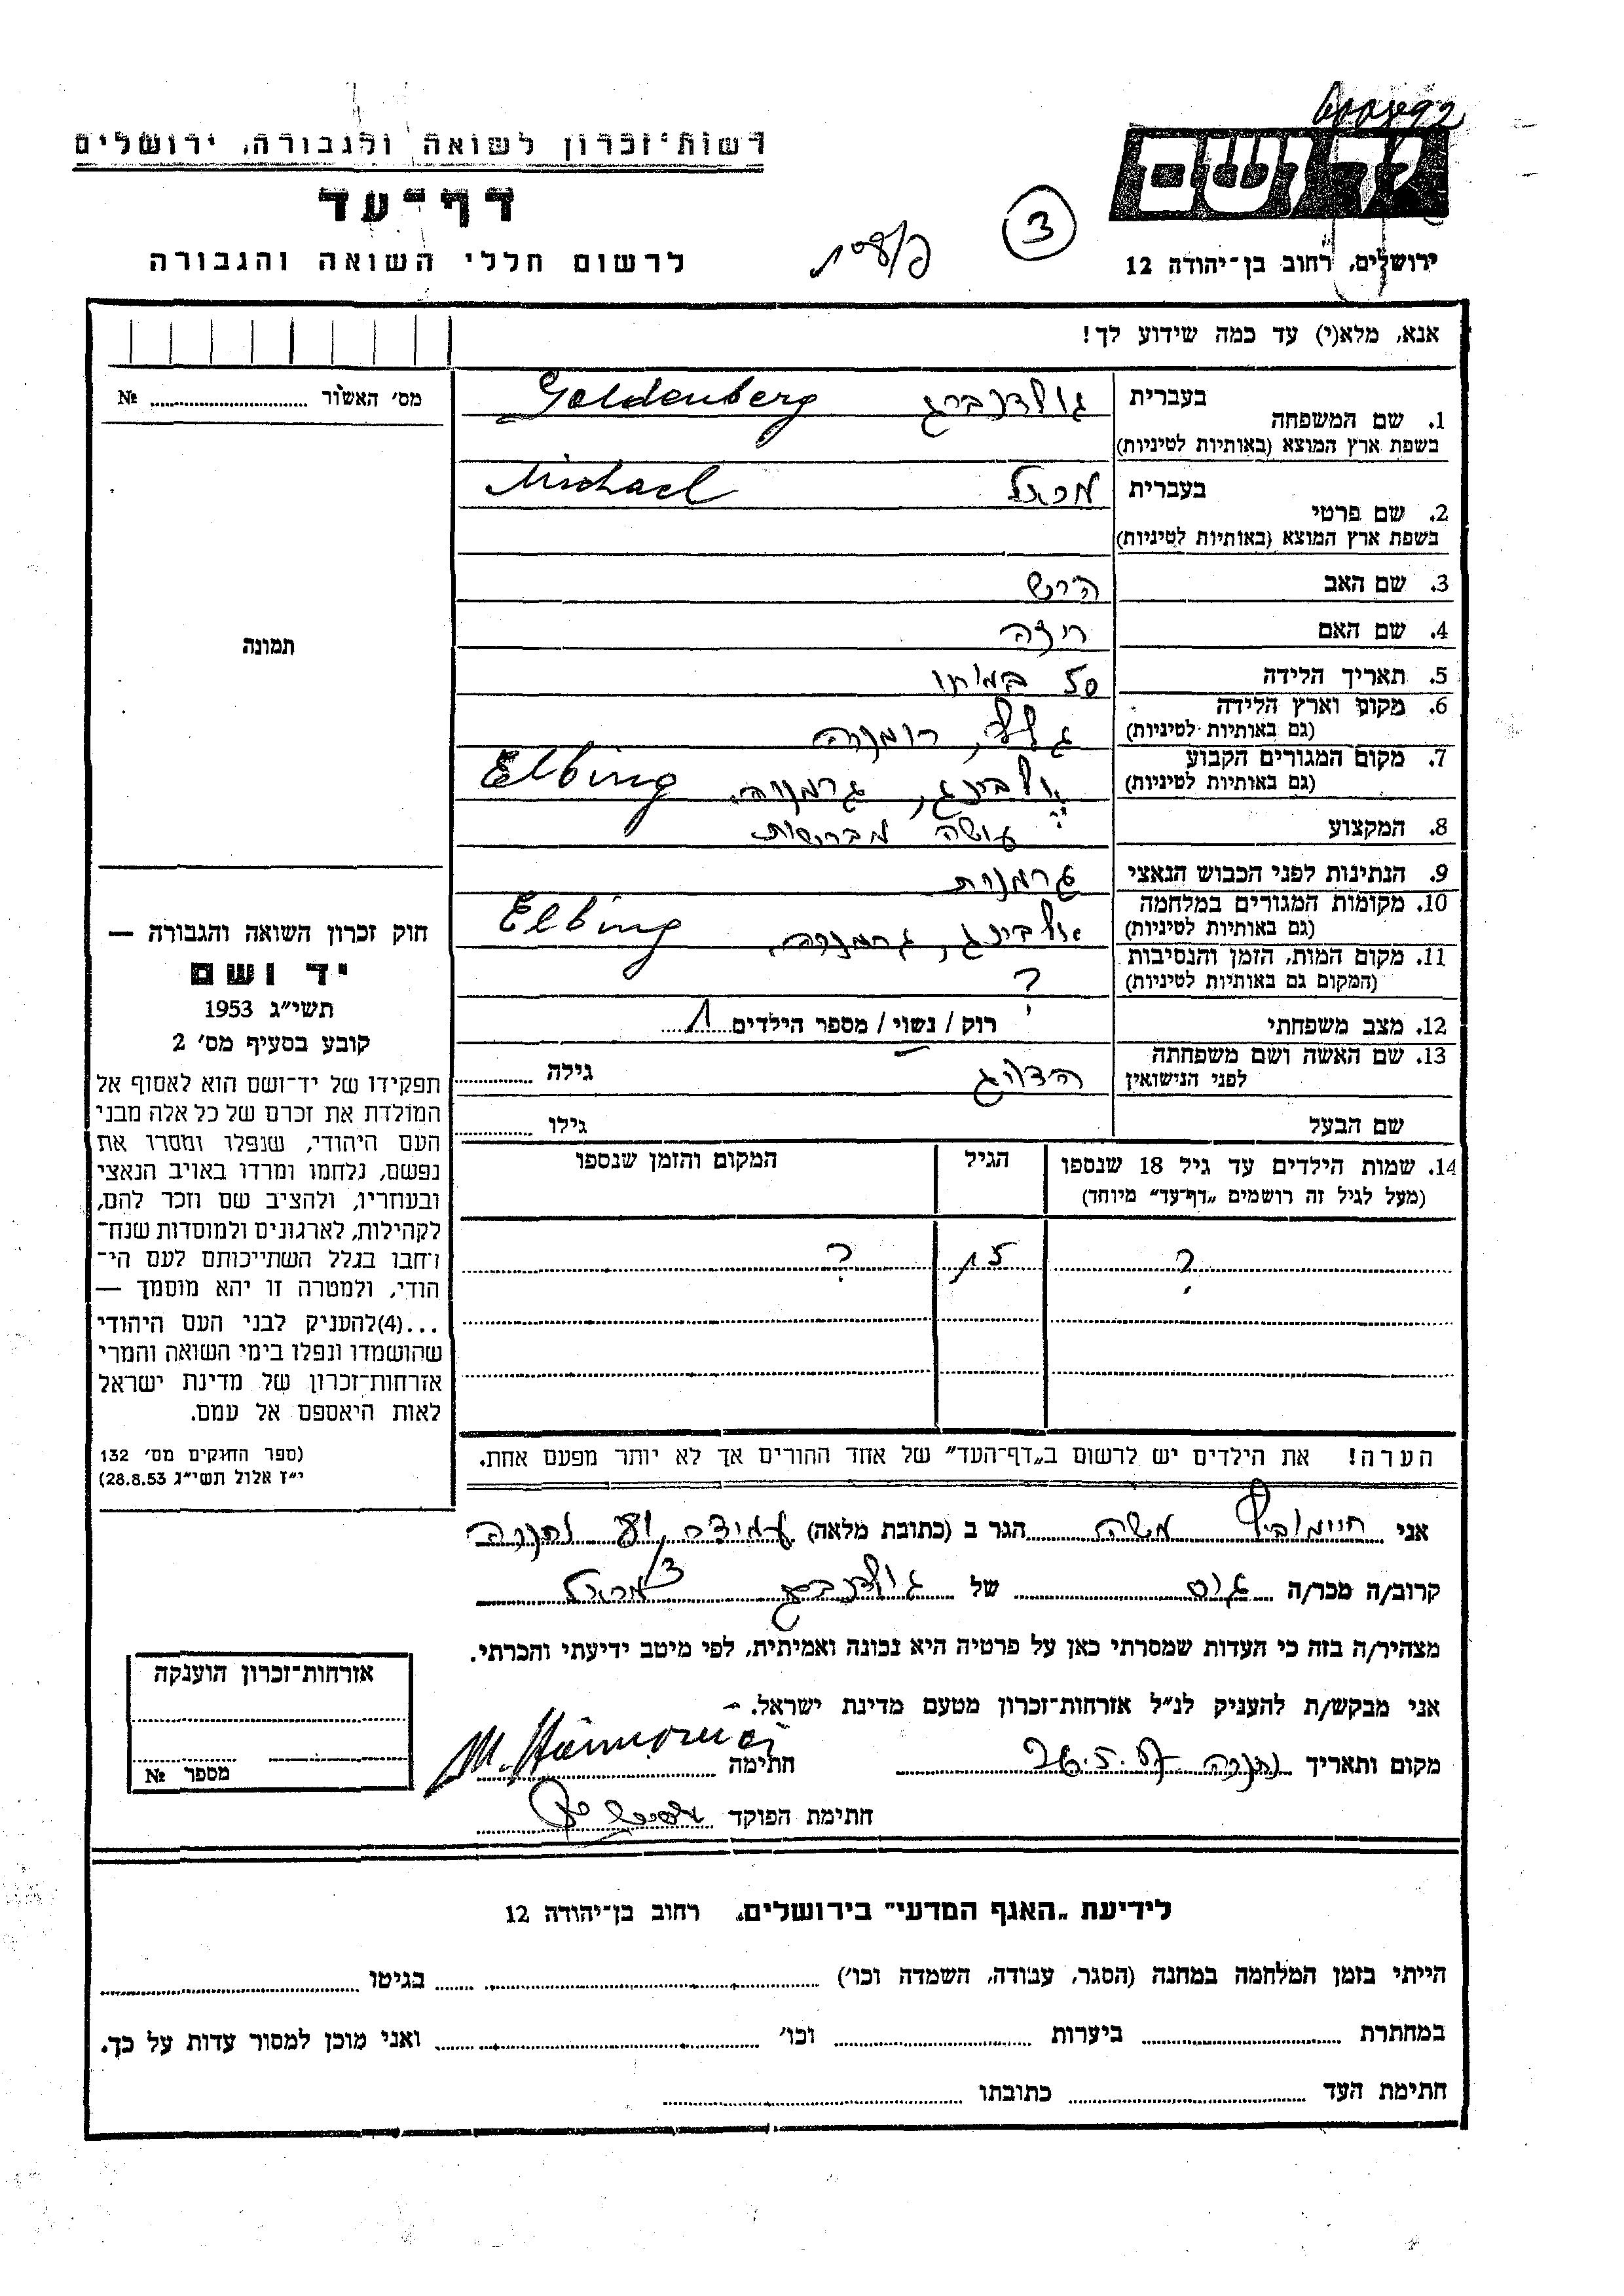 רשות־זכרון לשואה ולגבורה, ירושלים
דף־עד
לרשום חללי השואה והגבורה
יד ושם
ירושלים, רחוב בן־יהודה 12
3
אנא, מלא(י) עד כמה שידוע לך!
מס׳ האשור № 
תמונה
בעברית גולדנברג Goldenberg
1. שם המשפחה
בשפת ארץ המוצא (באותיות לטיניות)
בעברית מיכאל Michael
2. שם פרטי
בשפת ארץ המוצא (באותיות לטיניות)
3. שם האב הירש
4. שם האם
5. תאריך הלידה 50 במותו
6. מקום וארץ הלידה רומניה
(גם באותיות לטיניות)
7. מקום המגורים הקבוע אלבינג, גרמניה. Elbing
(גם באותיות לטיניות)
8. המקצוע עושה מברשות
9. הנתינות לפני הכבוש הנאצי גרמנית
10. מקומות המגורים במלחמה אלבינג, גרמניה. Elbing
(גם באותיות לטיניות)
11. מקום המות, הזמן והנסיבות ?
(המקום גם באותיות לטיניות)
12. מצב משפחתי רוק / נשוי / מספר הילדים 1
13. שם האשה ושם משפחתה הדויג גילה
לפני הנישואין
שם הבעל גילו
14. שמות הילדים עד גיל 18 שנספו הגיל המקום והזמן שנספו
(מעל לגיל זה רושמים „דף־עד” מיוחד)
? 15 ?
הערה! את הילדים יש לרשום ב„דף־העד” של אחד ההורים אך לא יותר מפעם אחת.
חוק זכרון השואה והגבורה —
יד ושם
תשי״ג 1953
קובע בסעיף מס׳ 2
תפקידו של יד־ושם הוא לאסוף אל
המולדת את זכרם של כל אלה מבני
העם היהודי, שנפלו ומסרו את
נפשם, נלחמו ומרדו באויב הנאצי
ובעוזריו, ולהציב שם וזכר להם,
לקהילות, לארגונים ולמוסדות שנח־
רחבו בגלל השתייכותם לעם הי־
הודי, ולמטרה זו יהא מוסמך —
...(4)להעניק לבני העם היהודי
שהושמדו ונפלו בימי השואה והמרי
אזרחות־זכרון של מדינת ישראל
לאות היאספם אל עמם.
(ספר החוקים מס׳ 132
י״ז אלול תשי״ג 28.8.53)
אני חיימוביץ משה הגר ב (כתובת מלאה) נתניה
קרוב/ה מכר/ה גיס של גולדנברג מיכאל
מצהיר/ה בזה כי העדות שמסרתי כאן על פרטיה היא נכונה ואמיתית, לפי מיטב ידיעתי והכרתי.
אני מבקש/ת להעניק לנ״ל אזרחות־זכרון מטעם מדינת ישראל.
מקום ותאריך נתניה 26.5.57 חתימה
חתימת הפוקד
אזרחות־זכרון הוענקה
מספר №
לידיעת „האגף המדעי” בירושלים, רחוב בן־יהודה 12
הייתי בזמן המלחמה במחנה (הסגר, עבודה, השמדה וכו׳) בגיטו
במחתרת ביערות וכו׳ ואני מוכן למסור עדות על כך.
חתימת העד כתובתו